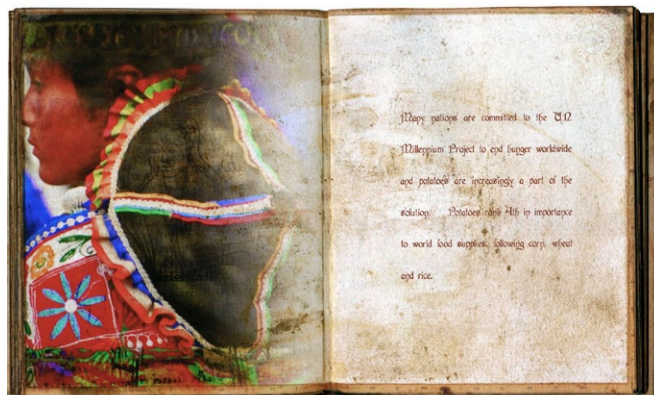 Many nations are committed to the U.N
Millennium Project to end hunger worldwide
and potatoes are increasingly a part of the
solution. Potatoes rank 4th in importance
to world food supplies, following corn, wheat
and rice.